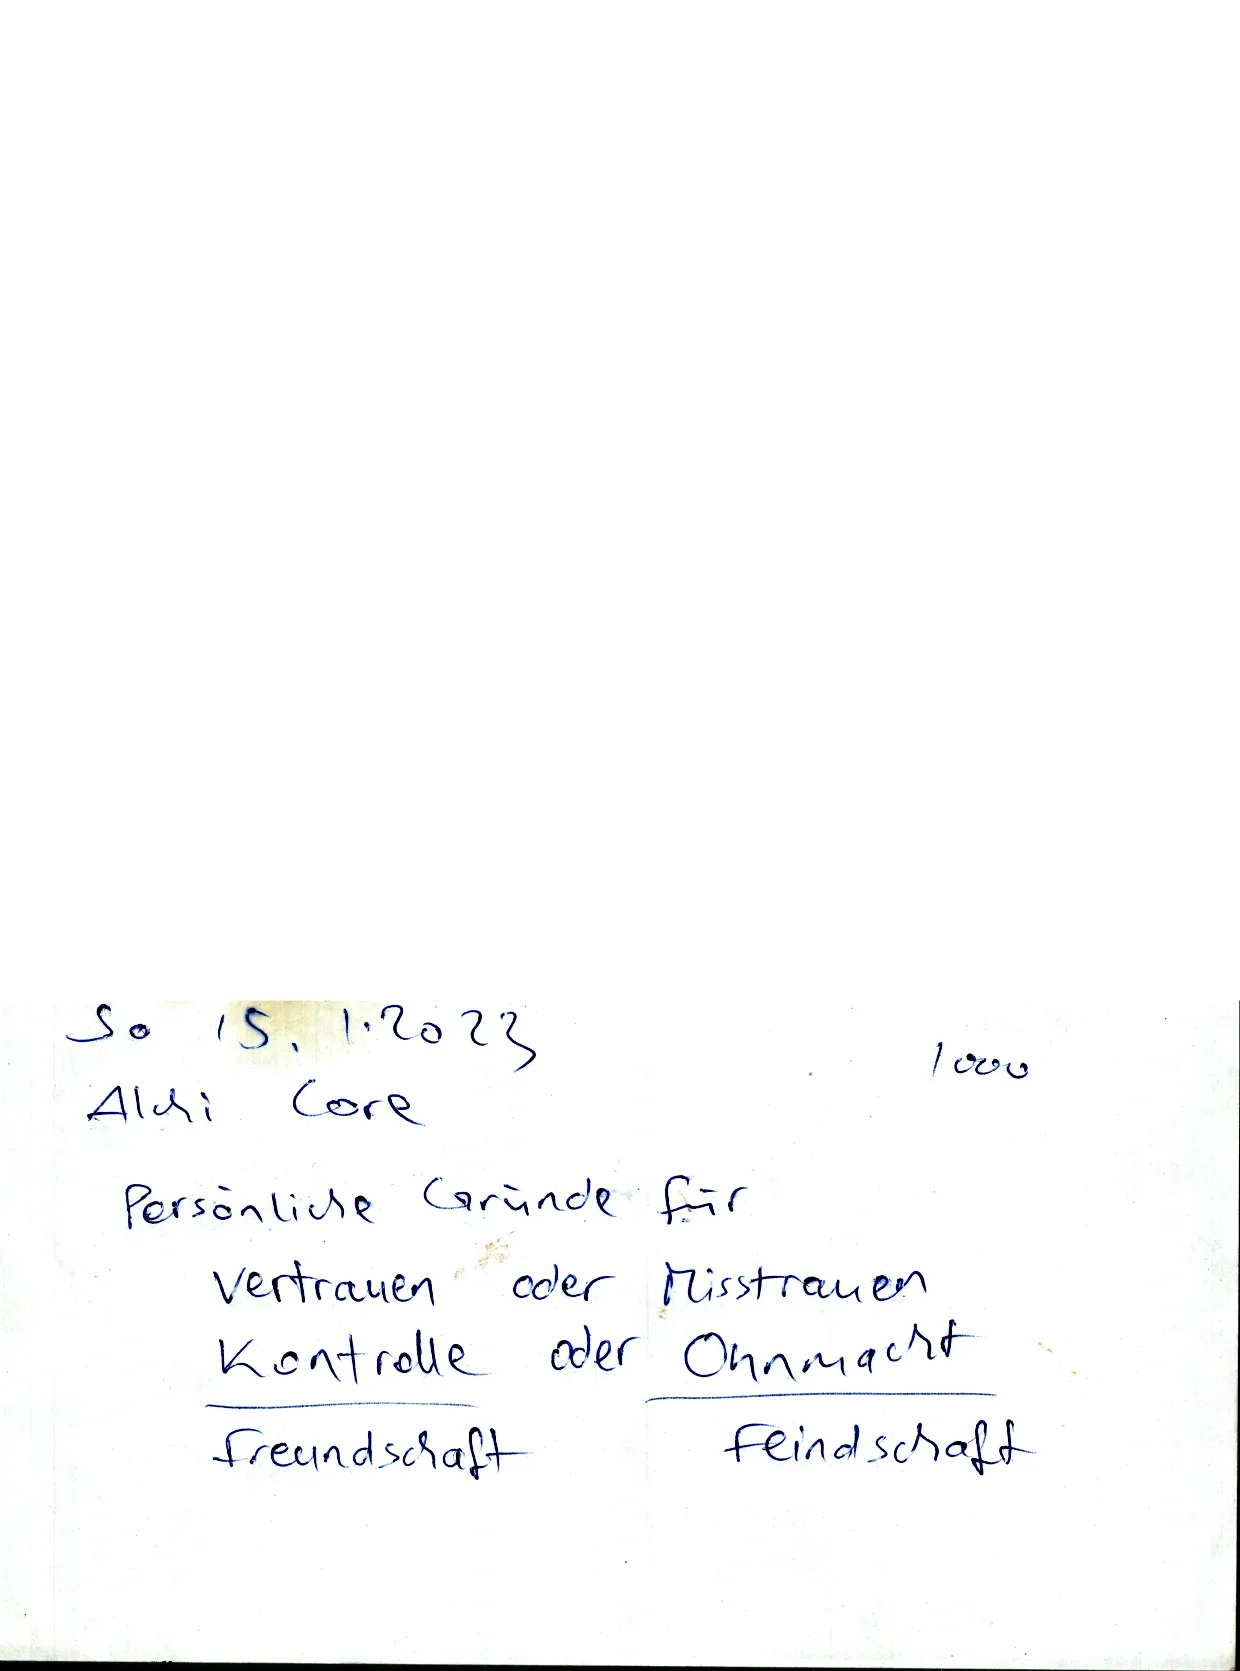 So 15.1.2023
1000
Alchi Core
Persönliche Gründe für
Vertrauen oder Misstrauen
Kontrolle oder Ohnmacht
Freundschaft Feindschaft